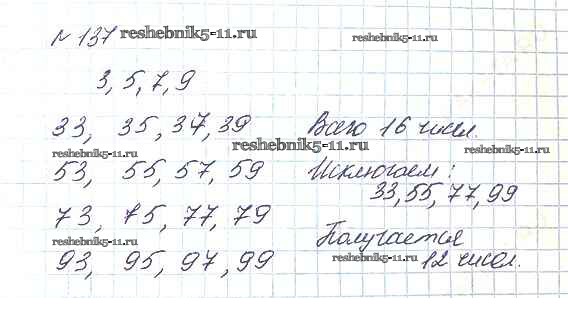 № 137 reshebnik5-11.ru reshebnik5-11.ru
3, 5, 7, 9
33, 35, 37, 39 Всего 16 чисел.
reshebnik5-11.ru reshebnik5-11.ru reshebnik5-11.ru
53, 55, 57, 59 Исключаем:
33, 55, 77, 99
73, 75, 77, 79 Получается
reshebnik5-11.ru reshebnik5-11.ru
93, 95, 97, 99 12 чисел.